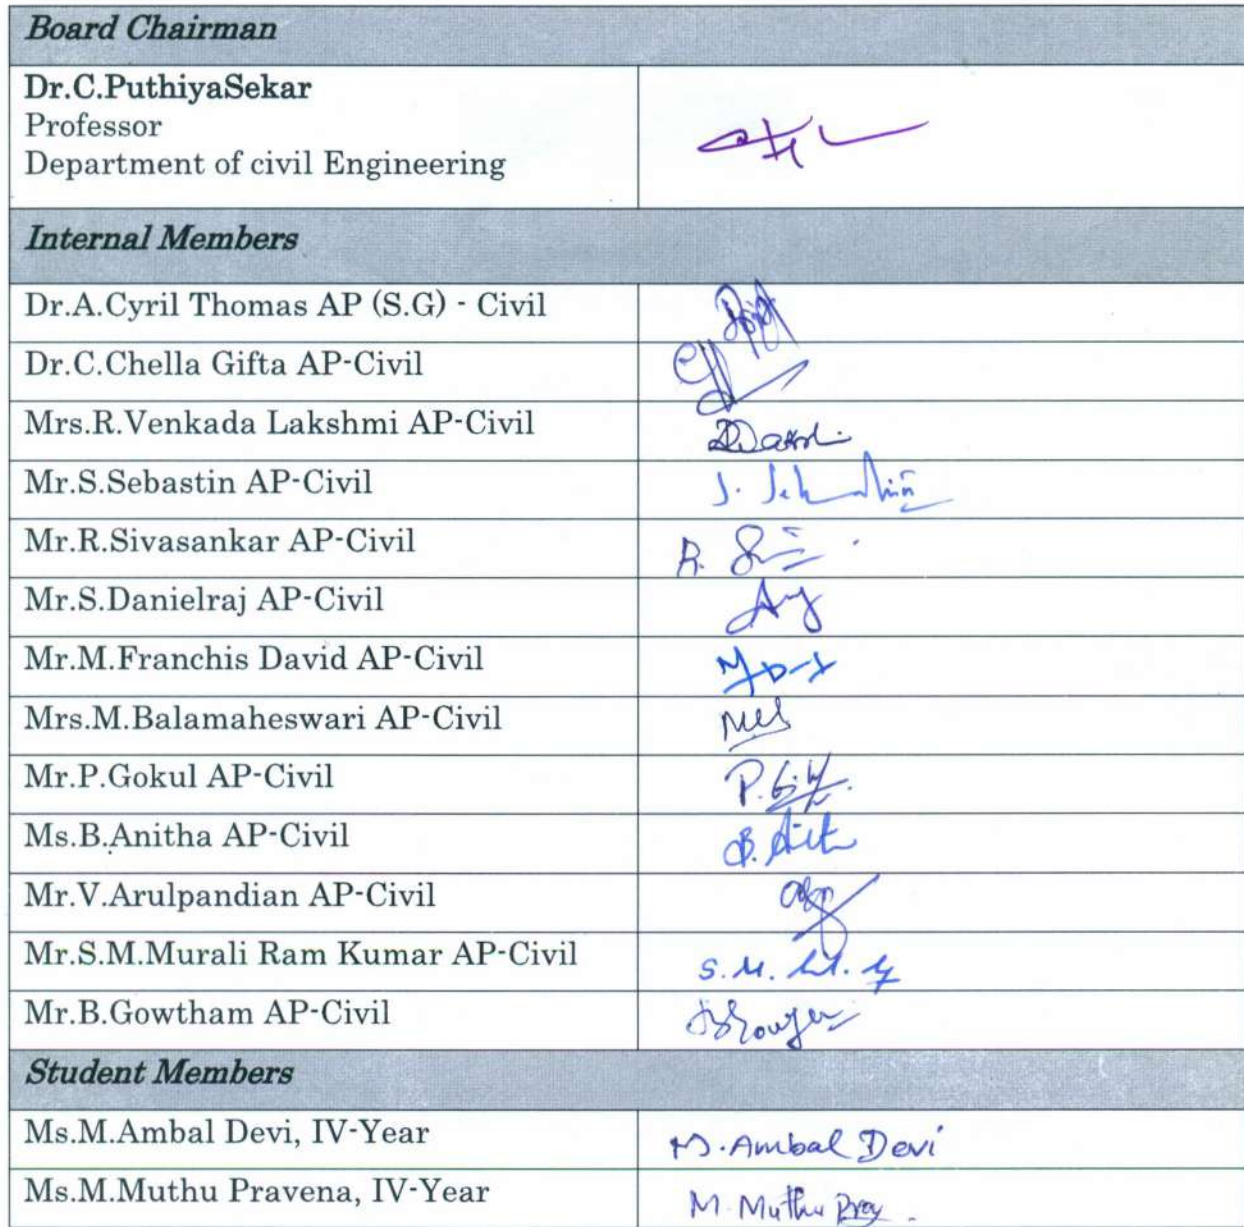 Board Chairman
Dr.C.PuthiyaSekar
Professor
Department of civil Engineering
Internal Members
Dr.A.Cyril Thomas AP (S.G) - Civil
Dr.C.Chella Gifta AP-Civil
Mrs.R.Venkada Lakshmi AP-Civil
Mr.S.Sebastin AP-Civil
Mr.R.Sivasankar AP-Civil
R.
Mr.S.Danielraj AP-Civil
Mr.M.Franchis David AP-Civil
Mrs.M.Balamaheswari AP-Civil
Mr.P.Gokul AP-Civil
P.
Ms.B.Anitha AP-Civil
B.
Mr.V.Arulpandian AP-Civil
Mr.S.M.Murali Ram Kumar AP-Civil
S.M.
Mr.B.Gowtham AP-Civil
Student Members
Ms.M.Ambal Devi, IV-Year
M.Ambal Devi
Ms.M.Muthu Pravena, IV-Year
M.Muthu